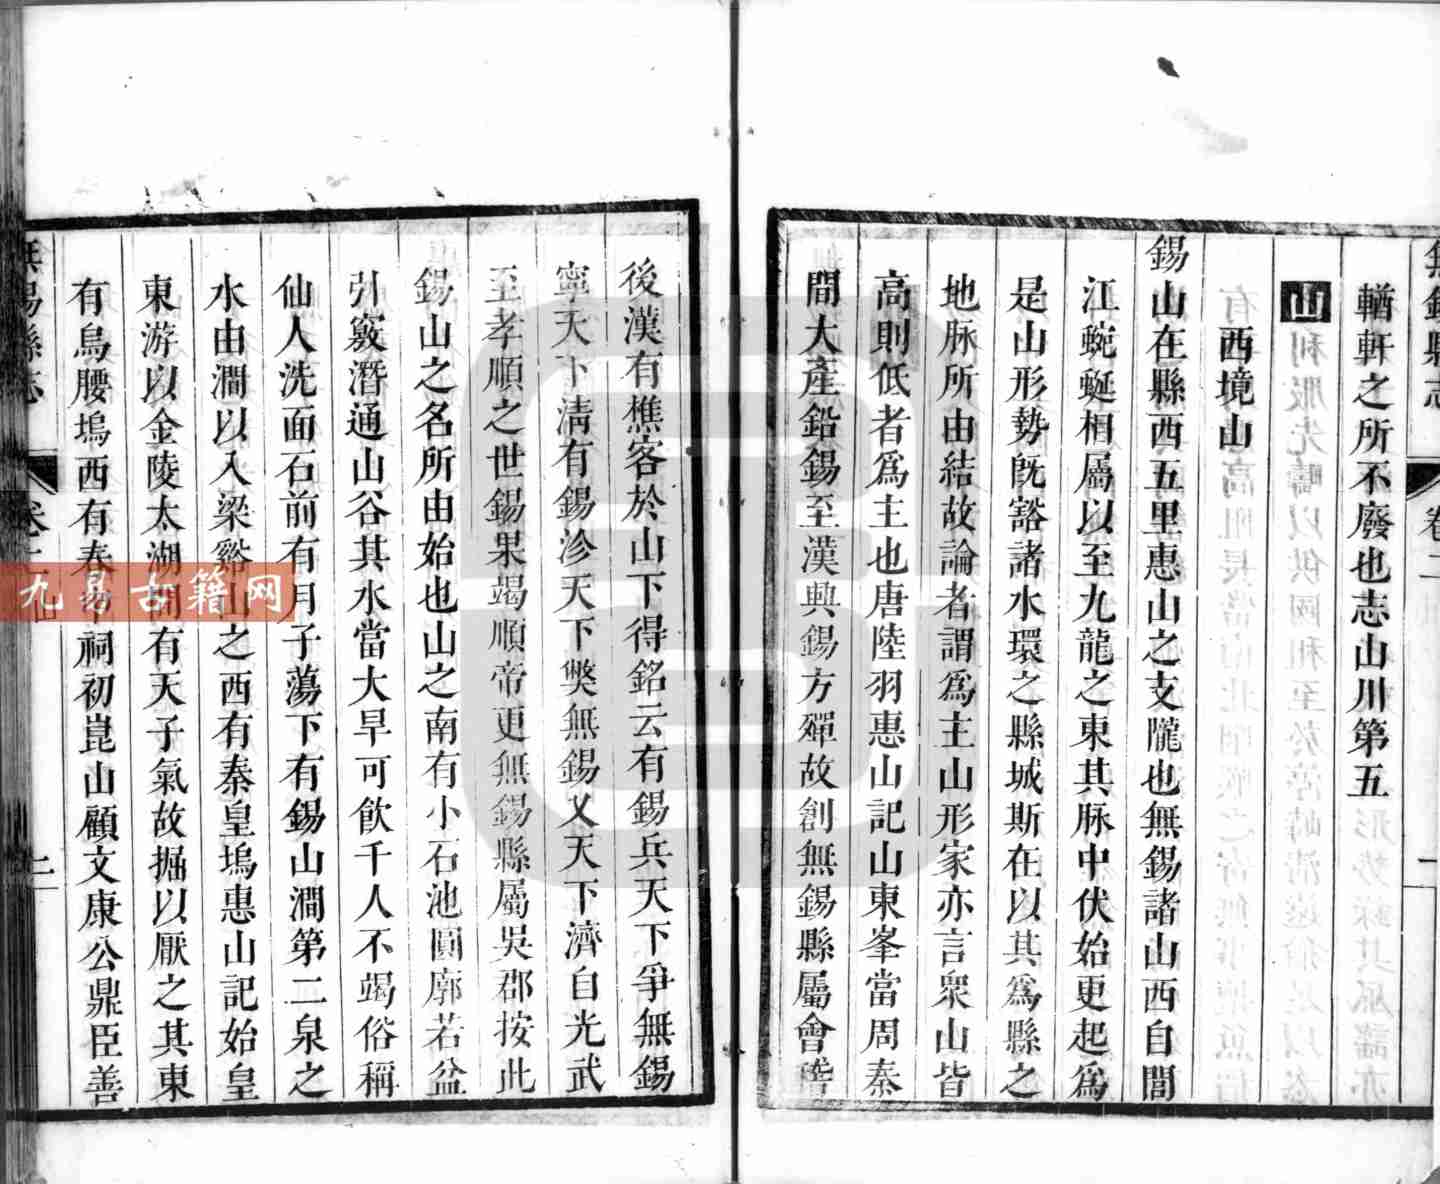 無錫縣志
卷二
輶軒之所不廢也志山川第五
山
西境山
錫山在縣西五里惠山之支隴也無錫諸山西自閶
江蜿蜒相屬以至九龍之東其脉中伏始更起爲
是山形勢旣豁諸水環之縣城斯在以其爲縣之
地脉所由結故論者謂爲主山形家亦言衆山皆
高則低者爲主也唐陸羽惠山記山東峯當周秦
間大產鉛錫至漢興錫方殫故創無錫縣屬會稽
後漢有樵客於山下得銘云有錫兵天下爭無錫
寧天下淸有錫沴天下獘無錫乂天下濟自光武
至孝順之世錫果竭順帝更無錫縣屬吳郡按此
錫山之名所由始也山之南有小石池圓廓若盆
引竅潛通山谷其水當大旱可飲千人不竭俗稱
仙人洗面石前有月子蕩下有錫山澗第二泉之
水由澗以入梁谿山之西有秦皇塢惠山記始皇
東游以金陵太湖間有天子氣故掘以厭之其東
有烏腰塢西有春申祠初崑山顧文康公鼎臣善
無錫縣志
山
二
九易古籍网